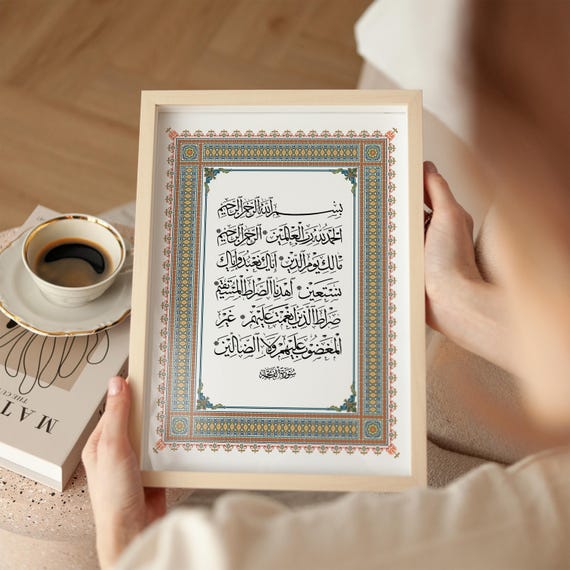 بسم الله الرحمن الرحيم
الحمد لله رب العالمين الرحمن الرحيم
مالك يوم الدين إياك نعبد وإياك
نستعين اهدنا الصراط المستقيم
صراط الذين أنعمت عليهم غير
المغضوب عليهم ولا الضالين
سورة الفاتحة
MAT
THE CU